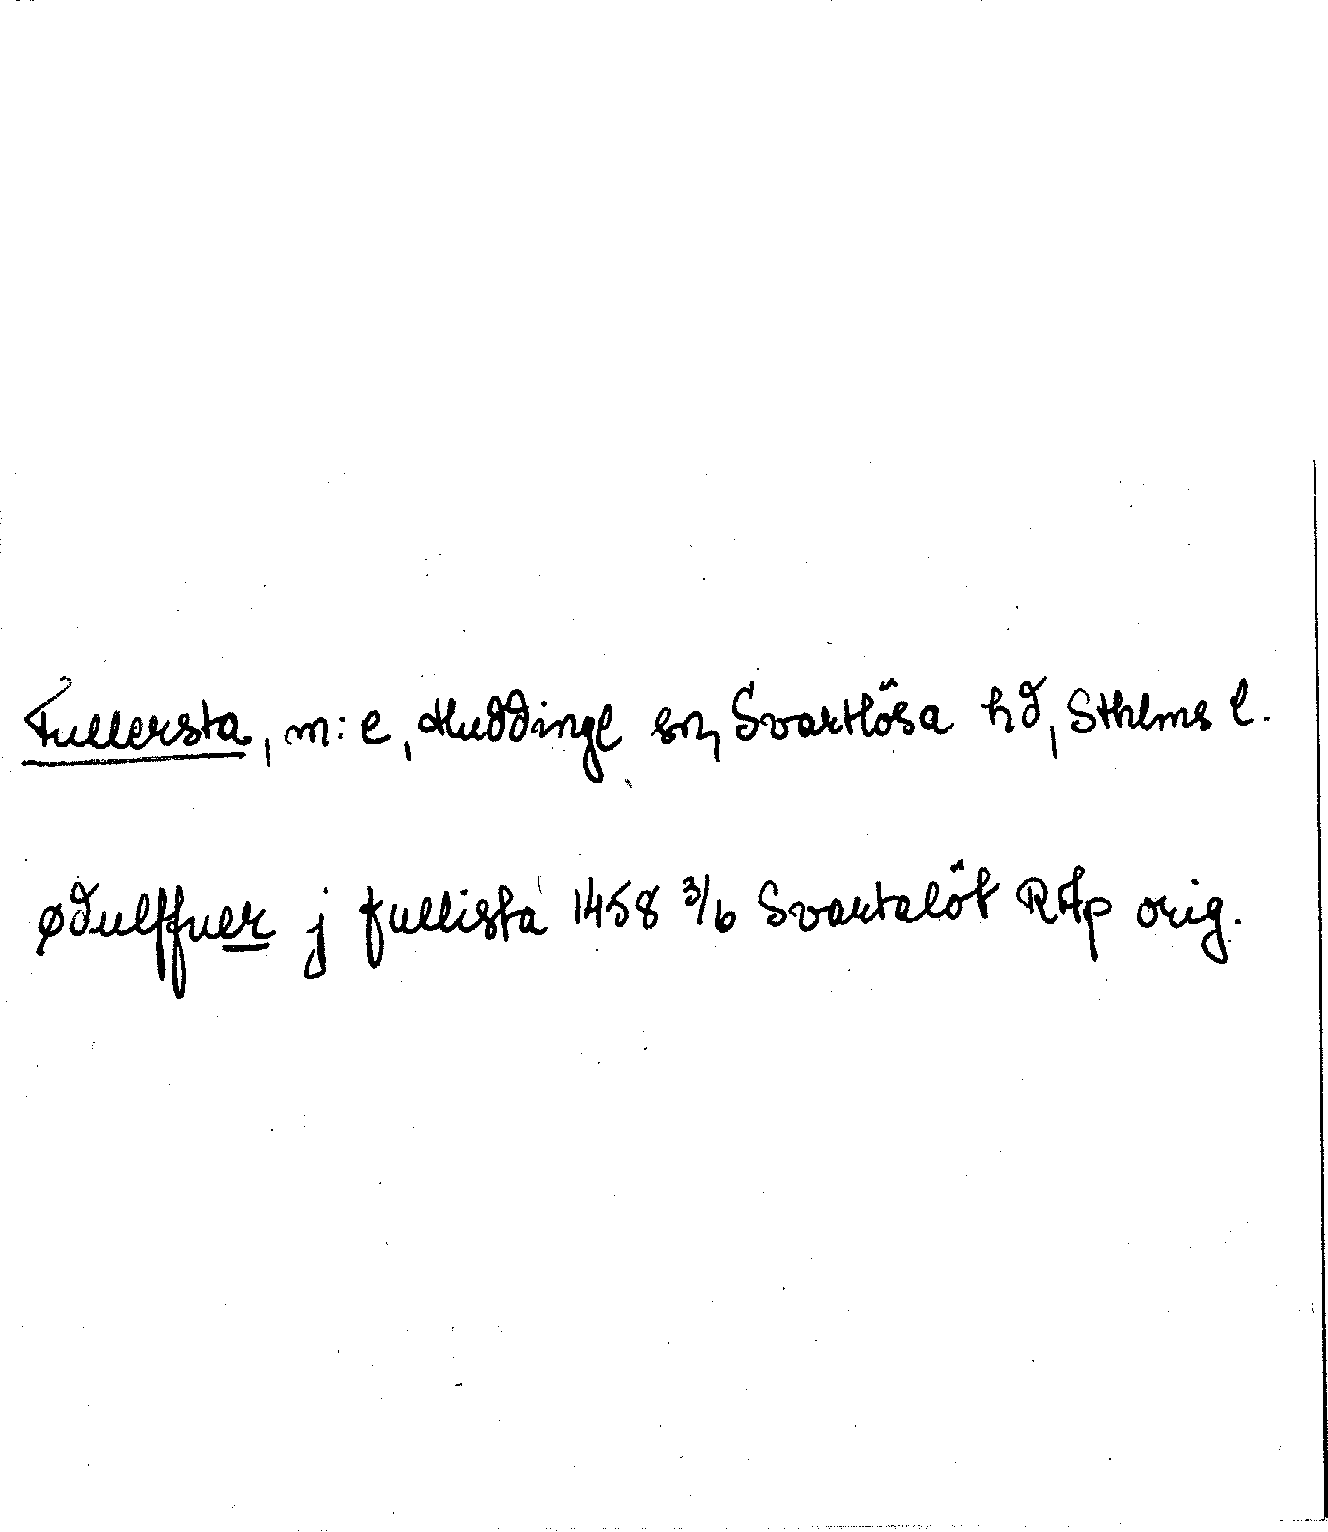 Fullersta, m: e, Huddinge sn, Svartlösa hd, Sthlms l.
ødulffuer j fullista 1458 3/6 Svartalöt RAp orig.